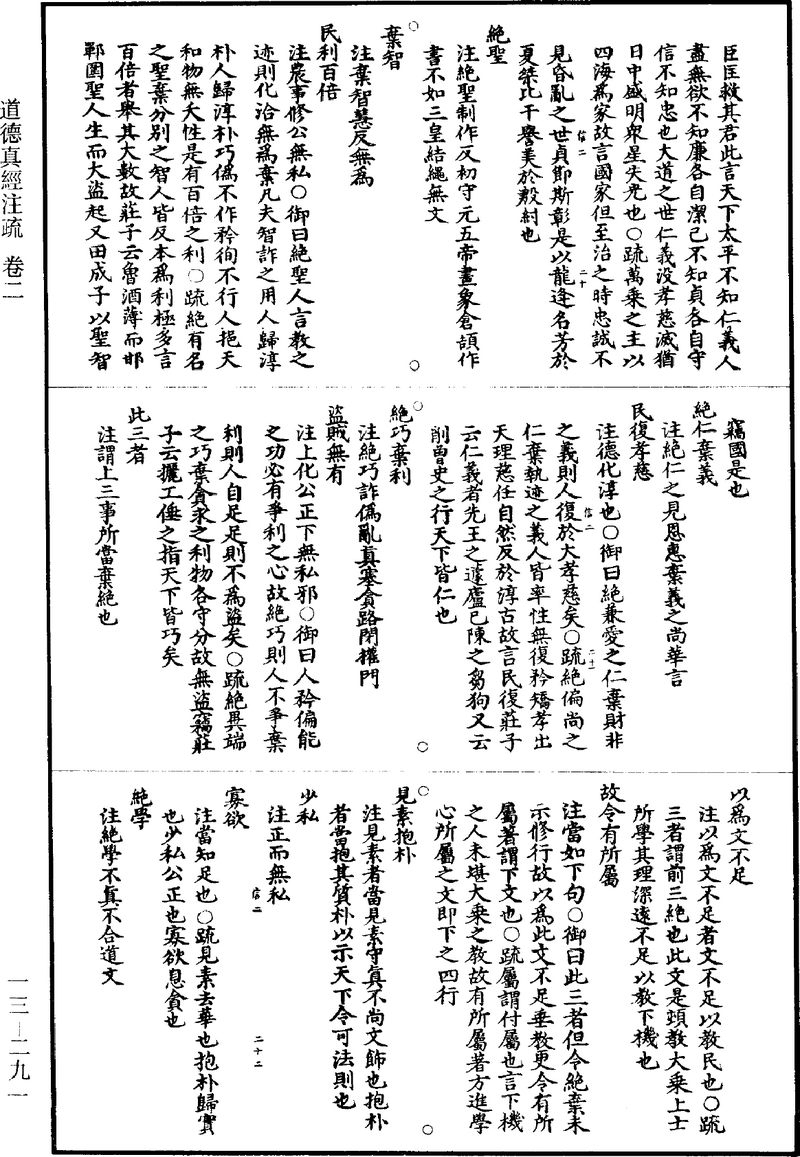 臣匡救其君此言天下太平不知仁義人
盡無欲不知廉各自潔己不知貞各自守
信不知忠也大道之世仁義没孝慈滅猶
日中盛明衆星失光也○疏萬乘之主以
四海爲家故言國家但至治之時忠誠不
信二 二十
見昏亂之世貞節斯彰是以龍逄名芳於
夏桀比干譽美於殷紂也
絶聖
注絶聖制作反初守元五帝畫象倉頡作
書不如三皇結繩無文
棄智
注棄智慧反無爲
民利百倍
注農事修公無私○御曰絶聖人言教之
迹則化洽無爲棄凡夫智詐之用人歸淳
朴人歸淳朴巧僞不作矜徇不行人挹天
和物無夭性是有百倍之利○疏絶有名
之聖棄分别之智人皆反本爲利極多言
百倍者舉其大數故莊子云魯酒薄而邯
鄲圍聖人生而大盜起又田成子以聖智
竊國是也
絶仁棄義
注絶仁之見恩惠棄義之尚華言
民復孝慈
注德化淳也○御曰絶兼愛之仁棄財非
信二 二十一
之義則人復於大孝慈矣○疏絶偏尚之
仁棄執迹之義人皆率性無復矜矯孝出
天理慈任自然反於淳古故言民復莊子
云仁義者先王之蘧廬已陳之芻狗又云
削曾史之行天下皆仁也
絶巧棄利
注絶巧詐僞亂真塞貪路閉權門
盜賊無有
注上化公正下無私邪○御曰人矜偏能
之功必有爭利之心故絶巧則人不爭棄
利則人自足足則不爲盜矣○疏絶異端
之巧棄貪求之利物各守分故無盜竊莊
子云攦工倕之指天下皆巧矣
此三者
注謂上三事所當棄絶也
以爲文不足
注以爲文不足者文不足以教民也○疏
三者謂前三絶也此文是頓教大乘上士
所學其理深遠不足以教下機也
故令有所屬
注當如下句○御曰此三者但令絶棄未
示修行故以爲此文不足垂教更令有所
屬著謂下文也○疏屬謂付屬也言下機
之人未堪大乘之教故有所屬著方進學
心所屬之文即下之四行
見素抱朴
注見素者當見素守真不尚文飾也抱朴
者當抱其質朴以示天下令可法則也
少私
注正而無私
信二 二十二
寡欲
注當知足也○疏見素去華也抱朴歸實
也少私公正也寡欲息貪也
絶學
注絶學不真不合道文
道德真經注疏 卷二
一三—二九一